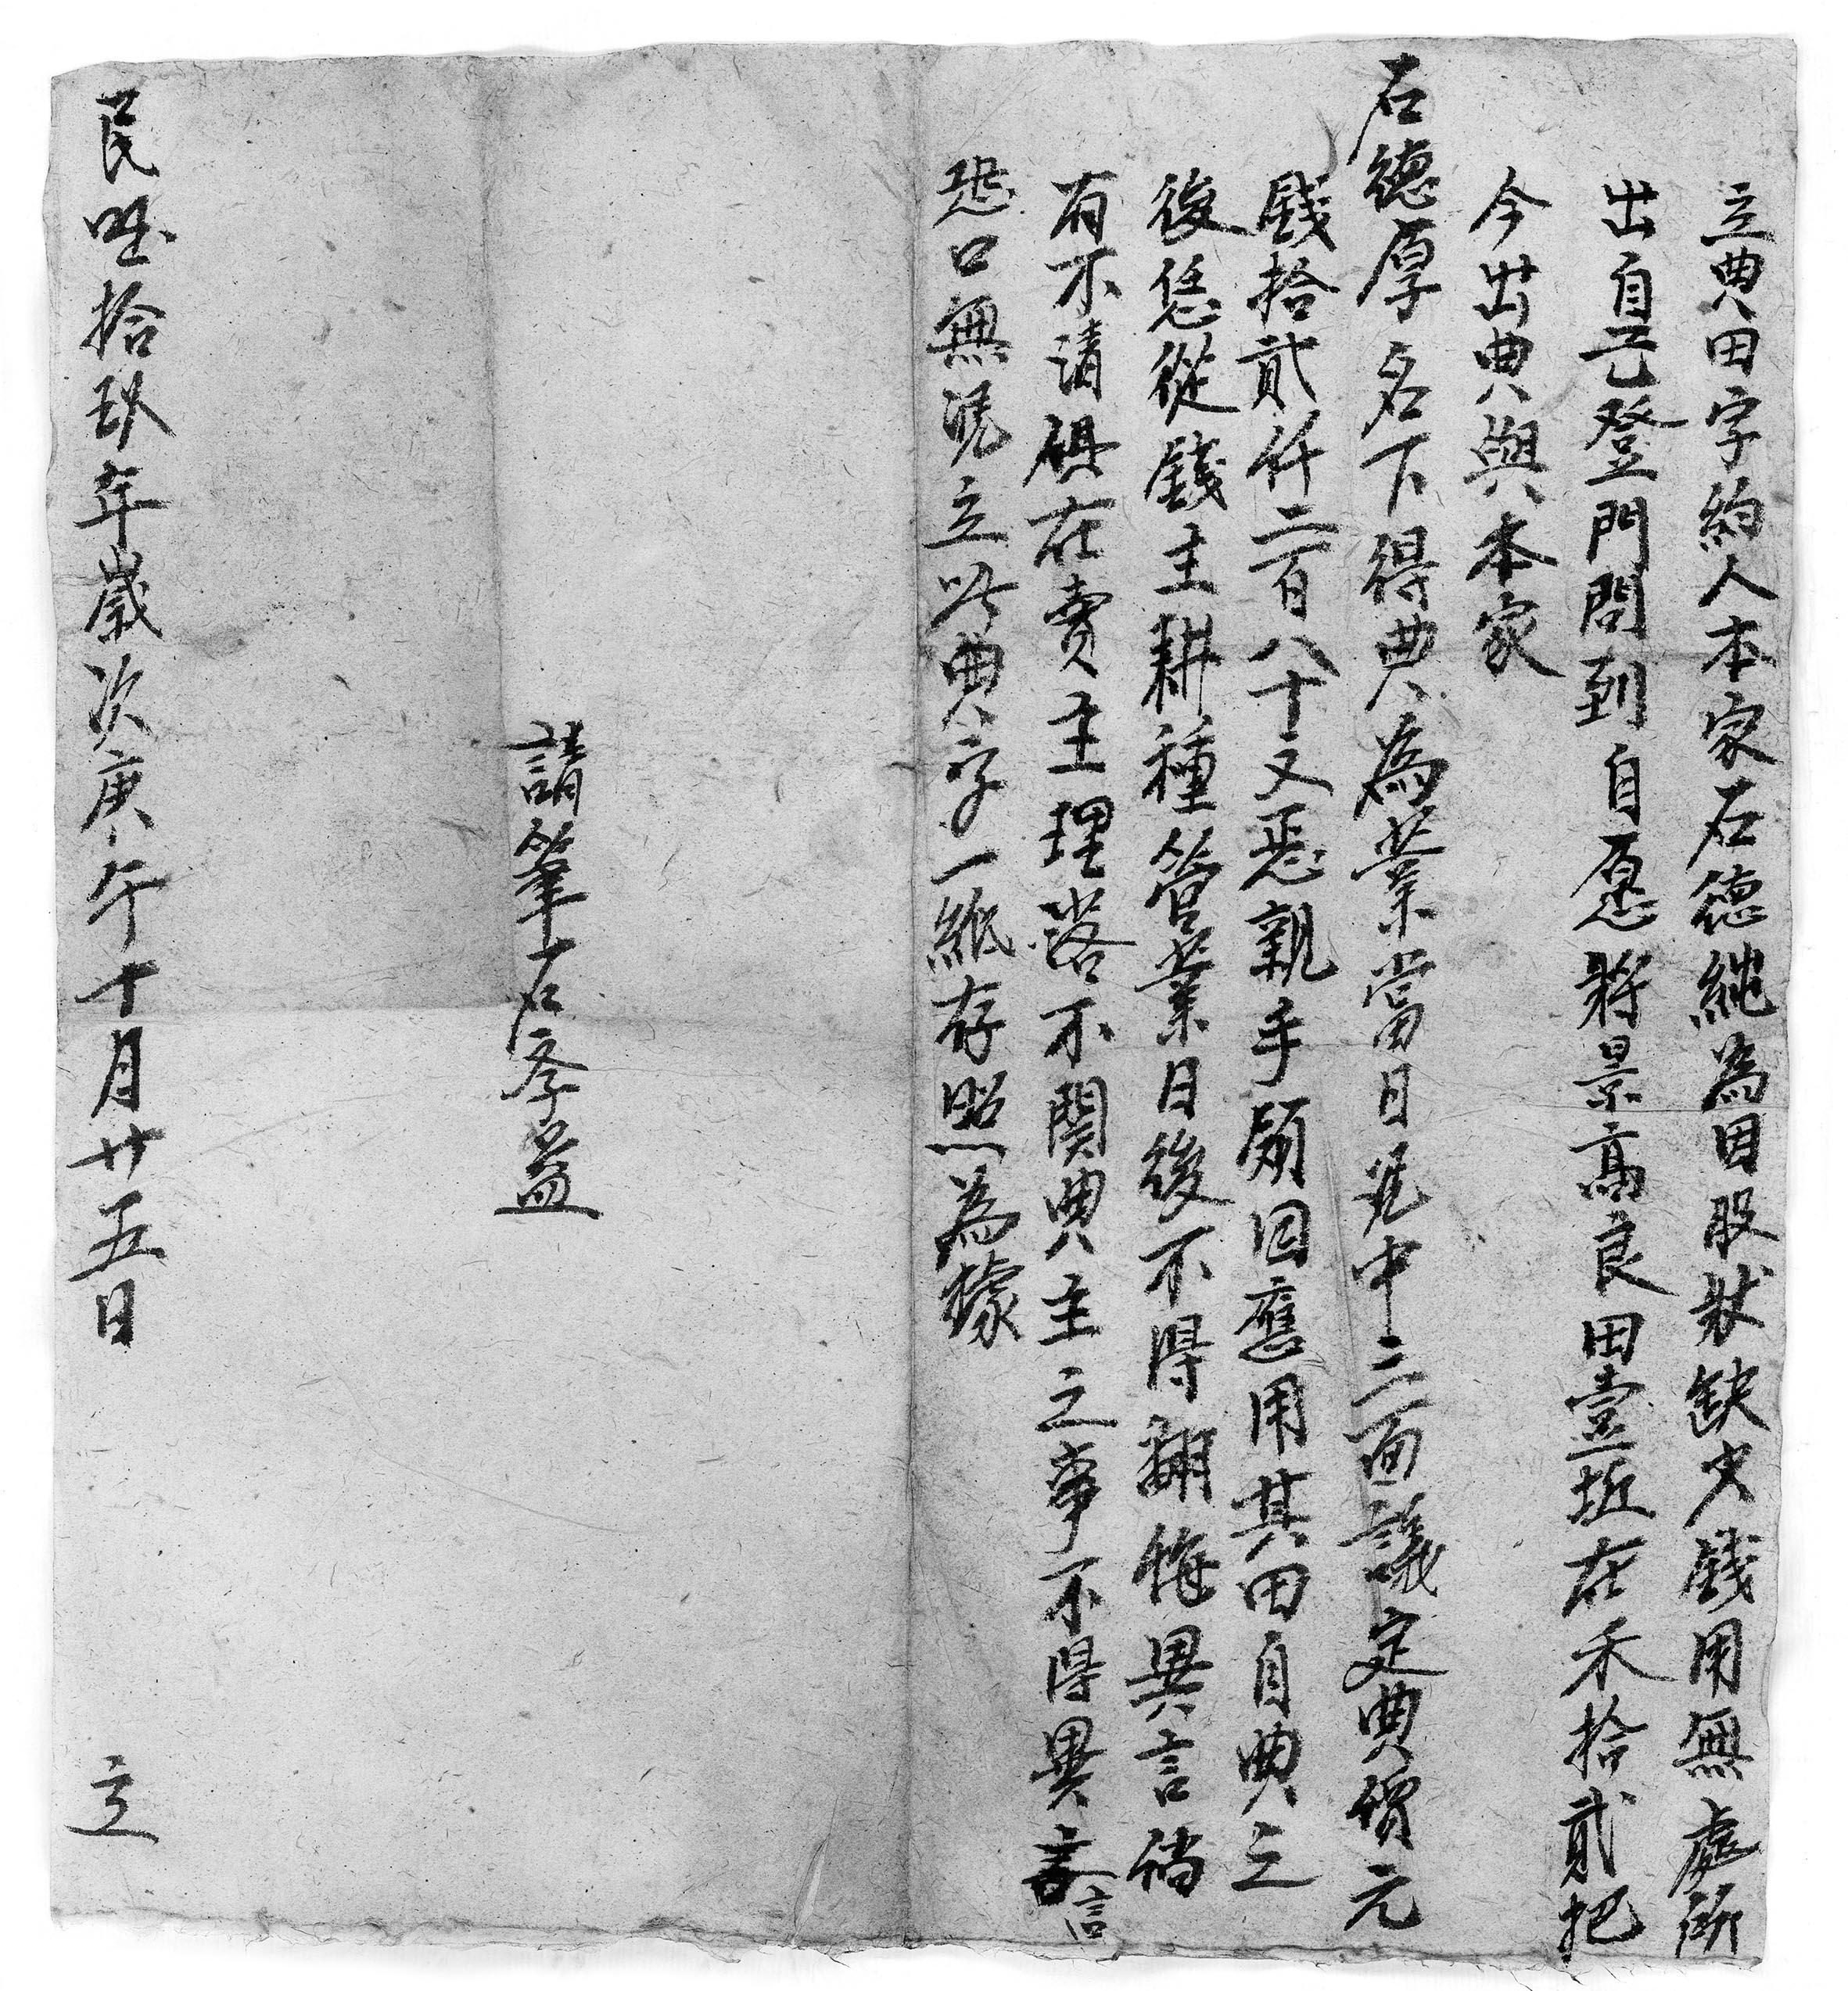 立典田字約人本家石德繩為因股狀缺少錢用無處所
出自己登門問到自愿將景高良田壹坵在禾拾貳把
今出典與本家
石德厚名下得典為業當日凭中三面議定典價元
錢拾貳仟二百八十文恶親手領回應用其田自典之
後恁從錢主耕種管業日後不得翻悔異言倘
有不清俱在賣主理落不関典主之事不得異言
恐口無凴立此典字一紙存照為據
請筆石孝益
民國拾玖年歲次庚午十月廿五日 立